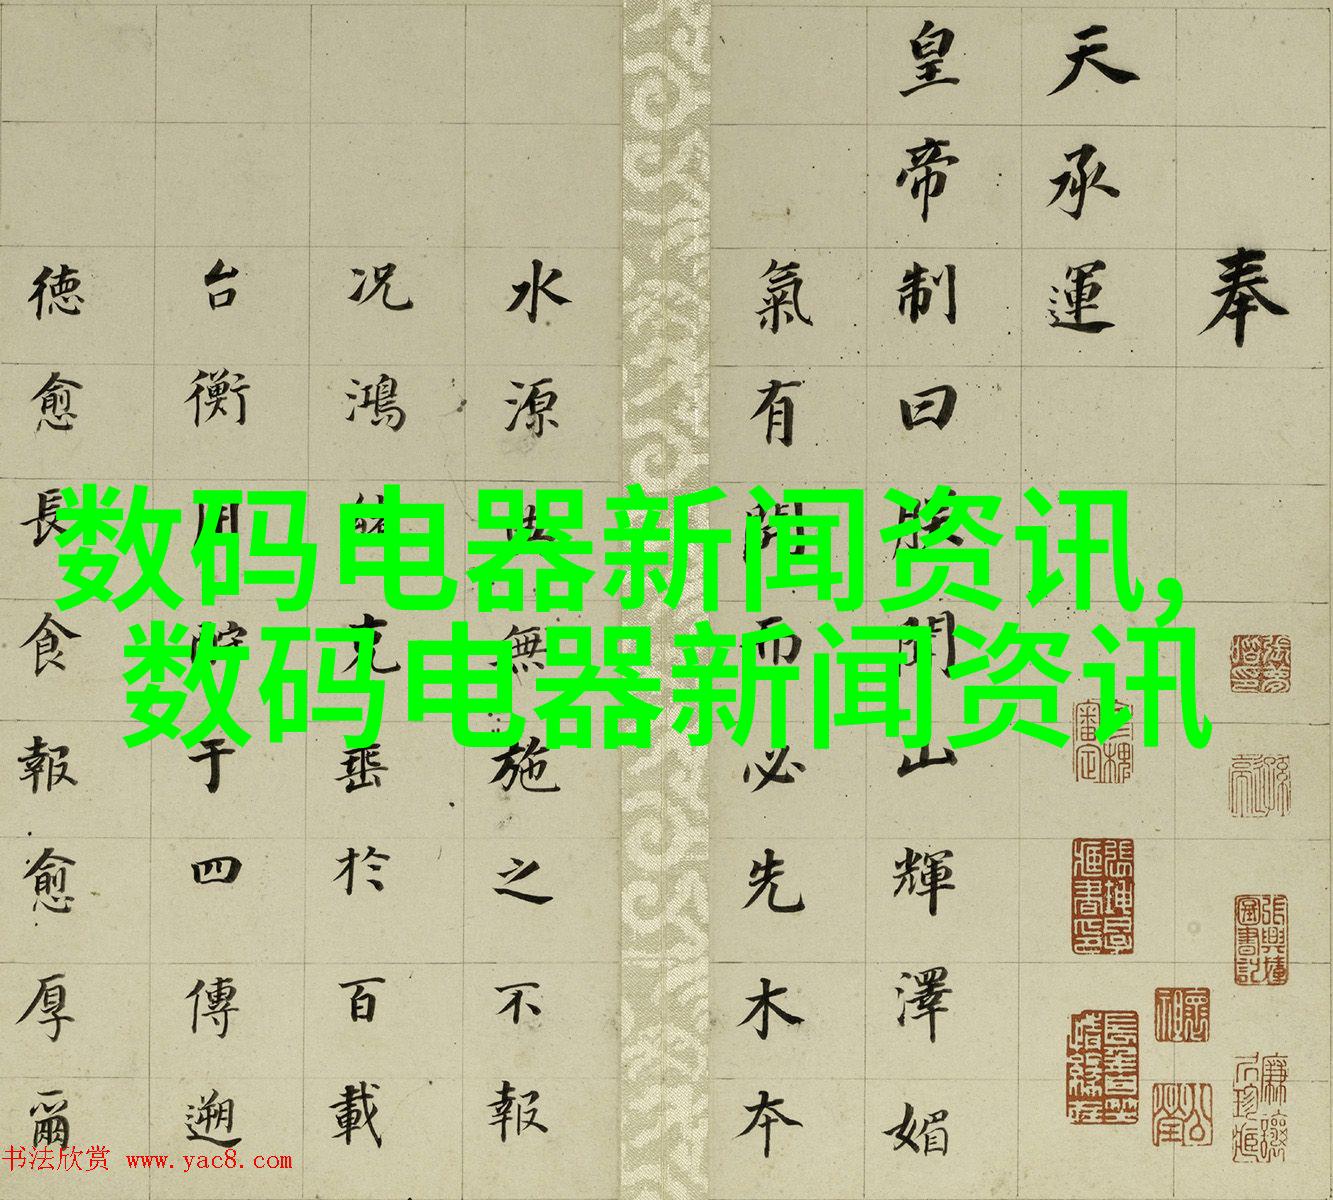 奉
天承運
皇帝制曰朕聞山輝澤媚
氣有開而必先木本
水源無施之不報
况鴻緒克垂於百載
台衡于四傳遡
德愈長食報愈厚爾
数码电器新闻资讯,
数码电器新闻资讯
书法欣赏 www.yac8.com